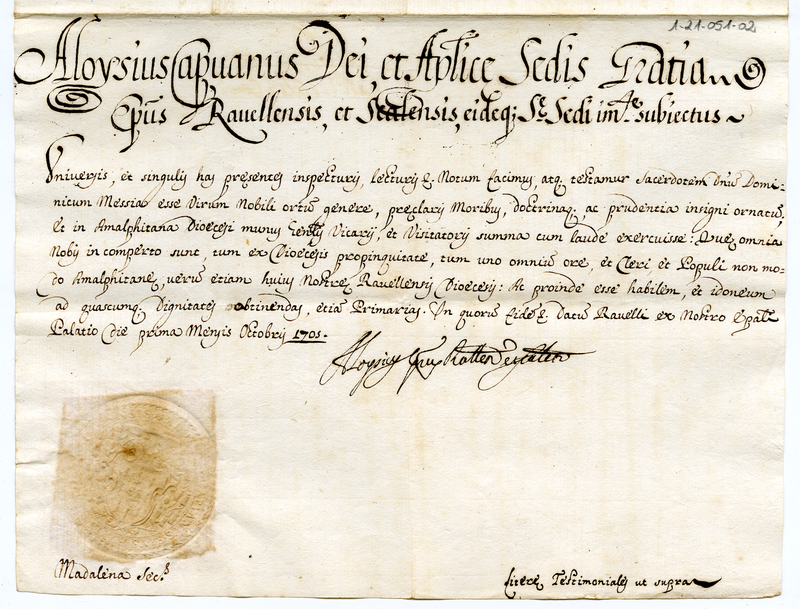 1-21-051-02
Aloysius Capuanus Dei, et Aplice Sedis Gratia
Epūs Ravellensis, et Scalensis, eideq; Sę Sedi imṫe subiectus ~
Universis, et singulis has presentes inspecturis, lecturis &. Notum facimus, atq; testamur Sacerdotem Dnūs Domi-
nicum Messia esse Virum Nobili ortūs genere, preclaris Moribus, doctrinaq; ac prudentia insigni ornatūs,
et in Amalphitana Dioecesi munus Genlis Vicarij, et Visitatoris summa cum laude exercuisse: Quę omnia
Nobis in comperto sunt, tum ex Dioecesis propinquitate, tum uno omniūs ore, et Cleri, et Populi non mo-
do Amalphitanę, verūs etiam huius Nostrę Ravellensis Dioecesis: At proinde esse habilem, et idoneum
ad quascumq; Dignitates obtinendas, etiās Primarias. In quorūs fidēs &. Datūs Ravelli ex Nostro Epali
Palatio die prima Mensis Octobris 1705.
Aloysius Epus
Madalena Sec.s
Literę Testimoniales ut supra